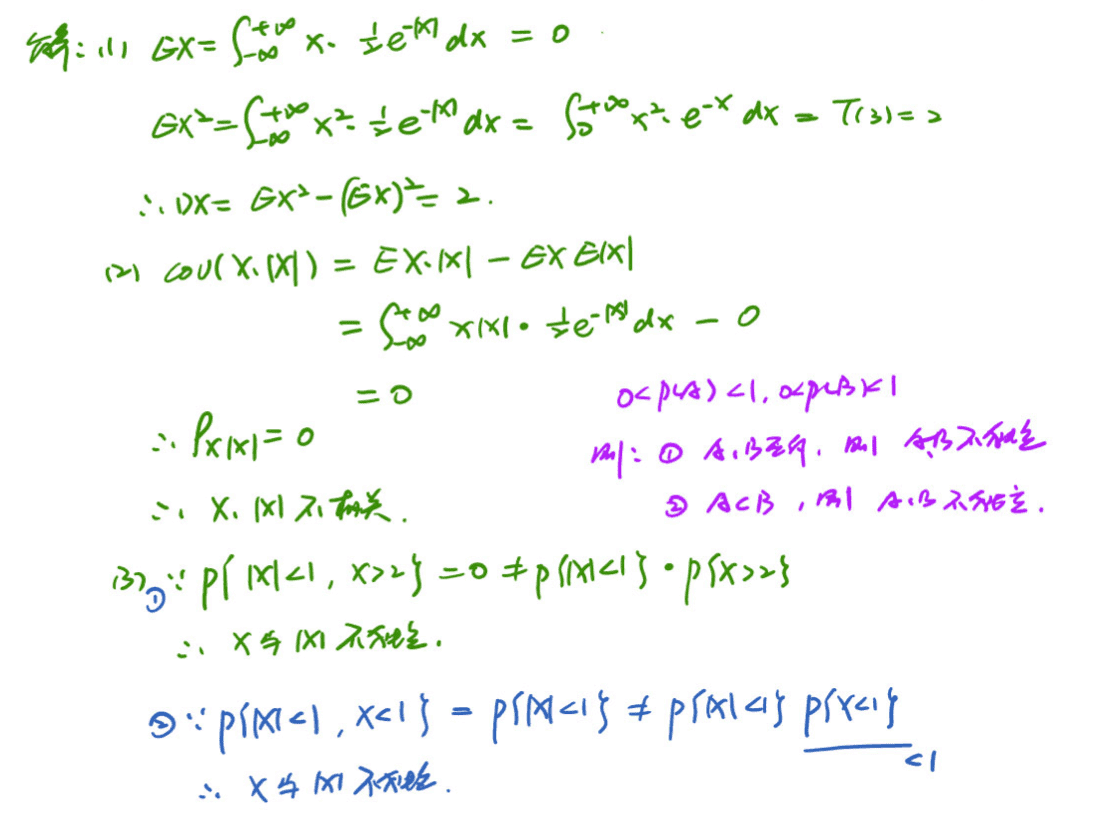 解：(1) EX=∫_{-∞}^{+∞} x·½e^{-|x|}dx = 0
EX²=∫_{-∞}^{+∞} x²·½e^{-|x|}dx = ∫_0^{+∞} x²·e^{-x} dx = Γ(3)=2
∴ DX= EX²-(EX)²= 2.
(2) cov(X,|X|) = EX·|X| - EX E|X|
= ∫_{-∞}^{+∞} x|x|·½e^{-|x|}dx - 0
= 0
∴ ρ_{X|X|}= 0
∴ X、|X| 不相关.
0<P(A)<1, 0<P(B)<1
则：① A、B互斥，则 A、B不独立
② A⊂B，则 A、B不独立.
(3) ① ∵ P{|X|<1, X>2} =0 ≠ P{|X|<1}·P{X>2}
∴ X与|X| 不独立.
② ∵ P{|X|<1, X<1} = P{|X|<1} ≠ P{|X|<1} P{X<1}
<1
∴ X与|X| 不独立.